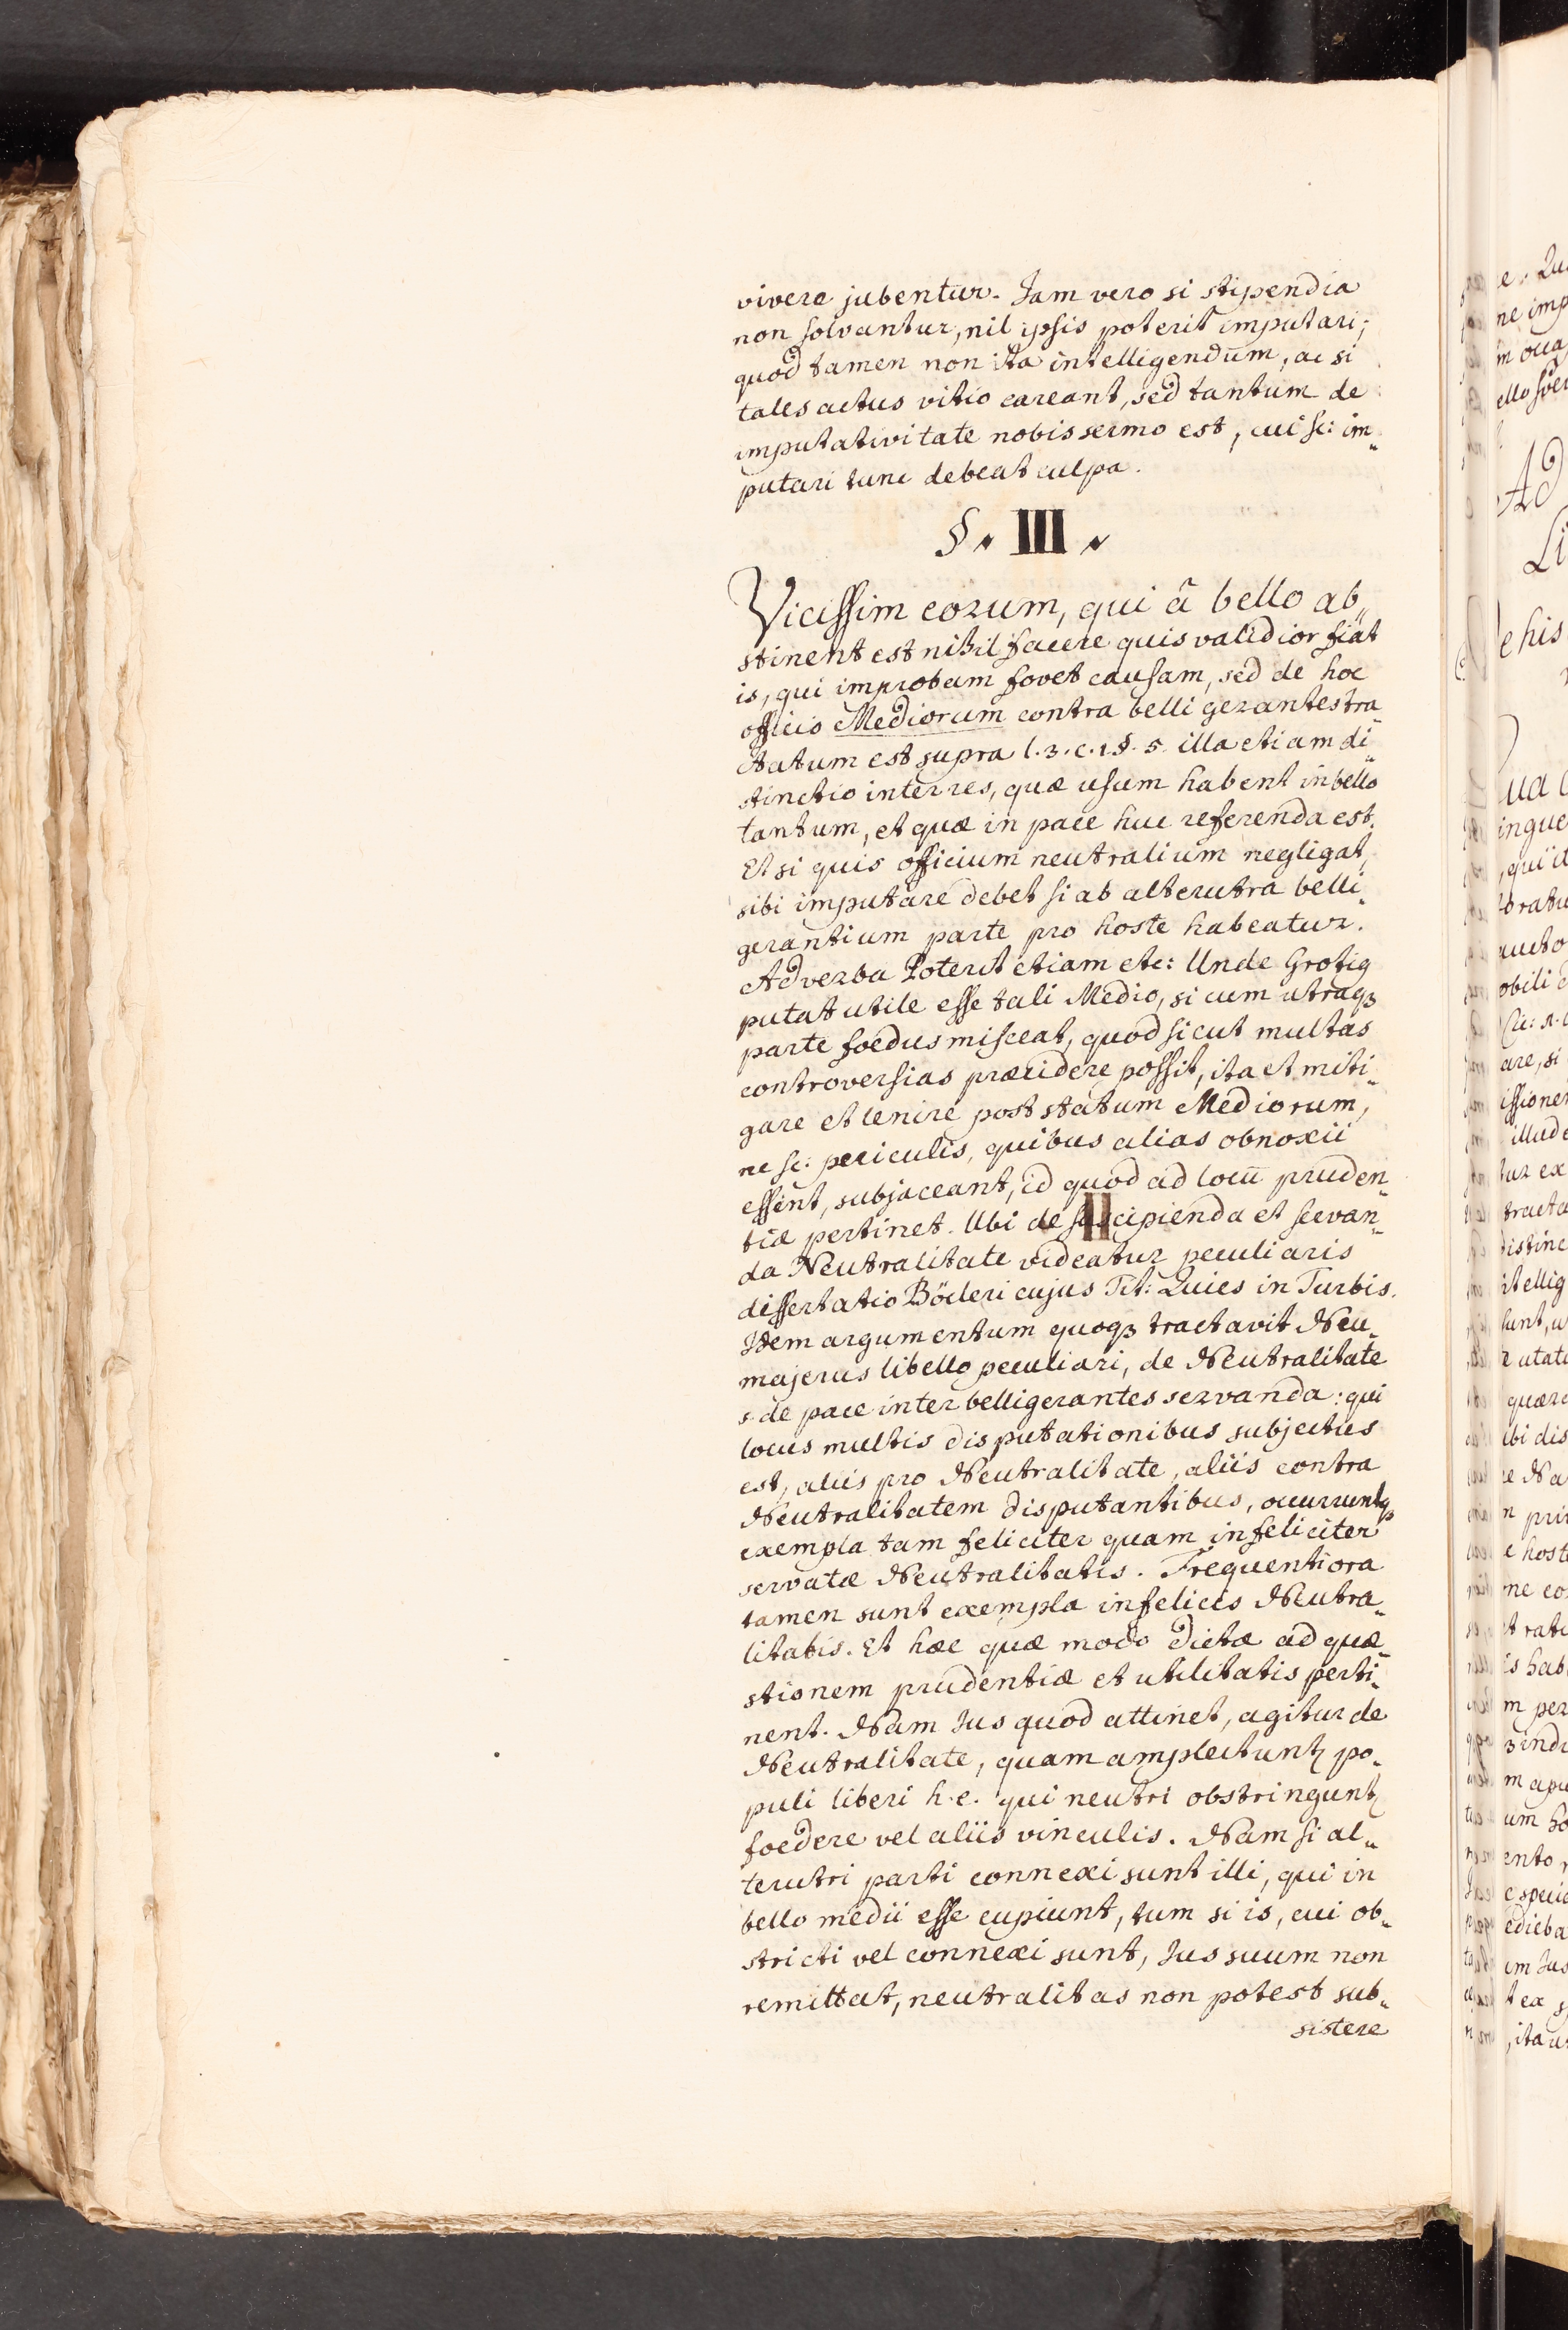 vivere jubentur. Jam vero si stipendia
non solvantur, nil ipsis poterit imputari;
quod tamen non ita intelligendum, ac si
tales actus vitio careant, sed tantum de
imputativitate nobis sermo est, cui sc: im-
putari tunc debeat culpa.
§. III.
Vicissim eorum, qui â bello ab-
stinent est nihil facere quis validior fiat
is, qui improbam fovet causam, sed de hoc
officio Mediorum contra belli gerantes tra-
ctatum est supra l.3.c.1.§.5. illa etiam di-
stinctio inter res, quæ usum habent in bello
tantum, et quæ in pace huc referenda est.
Et si quis officium neutralium negligat,
sibi imputare debet si ab alterutra belli-
gerantium parte pro hoste habeatur.
Ad verba Poterit etiam etc: Unde Grotig
putat utile esse tali Medio, si cum utraqꝫ
parte foedus misceat, quod sicut multas
controversias præcidere possit, ita et miti-
gare et lenire post statum Mediorum,
ne sc: periculis, quibus alias obnoxii
essent, subjaceant, id quod ad locū pruden-
tiæ pertinet. Ubi de suscipienda et servan-
da Neutralitate videatur peculiaris
dissertatio Böcleri cujus Tit: Quies in Turbis.
Idem argumentum quoqꝫ tractavit Neu-
majerus libello peculiari, de Neutralitate
s. de pace inter belligerantes servanda: qui
locus multis disputationibus subjectus
est, aliis pro Neutralitate, aliis contra
Neutralitatem disputantibus, occurruntqꝫ
exempla tam feliciter quam infeliciter
servatæ Neutralitatis. Frequentiora
tamen sunt exempla infelicis Neutra-
litatis. Et hæc quæ modo dicta ad quæ-
stionem prudentiæ et utilitatis perti-
nent. Nam Jus quod attinet, agitur de
Neutralitate, quam amplectuntꝝ po-
puli liberi h.e. qui neutri obstringuntꝝ
foedere vel aliis vinculis. Nam si al-
terutri parti connexi sunt illi, qui in
bello medii esse cupiunt, tum si is, cui ob-
stricti vel connexi sunt, Jus suum non
remittat, neutralitas non potest sub-
sistere